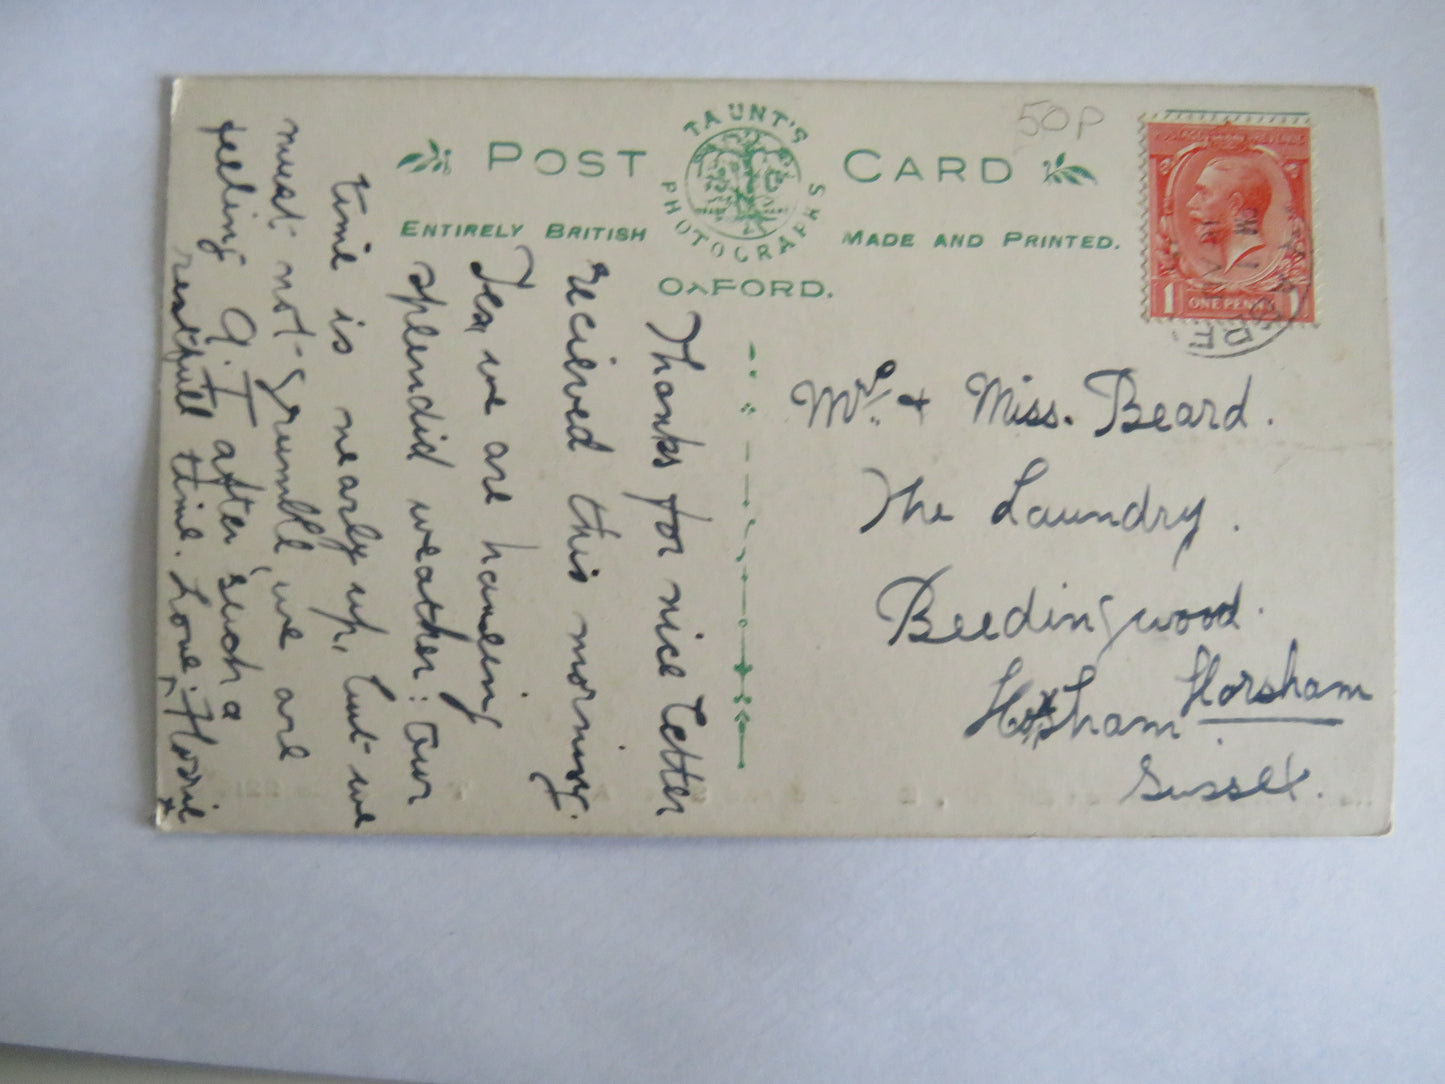 50P
POST CARD
TAUNT'S
PHOTOGRAPHS
ENTIRELY BRITISH MADE AND PRINTED.
OXFORD.
ONE PENNY
1 1
Thanks for nice letter
recieved this morning.
Yes, we are having
splendid weather: Our
time is nearly up, but we
must not grumble, we are
feeling A.1 after such a
restfull time. Love. Florrie
x
Mrs. & Miss. Beard.
The Laundry.
Beedingwood.
Horsham Horsham
Sussex.